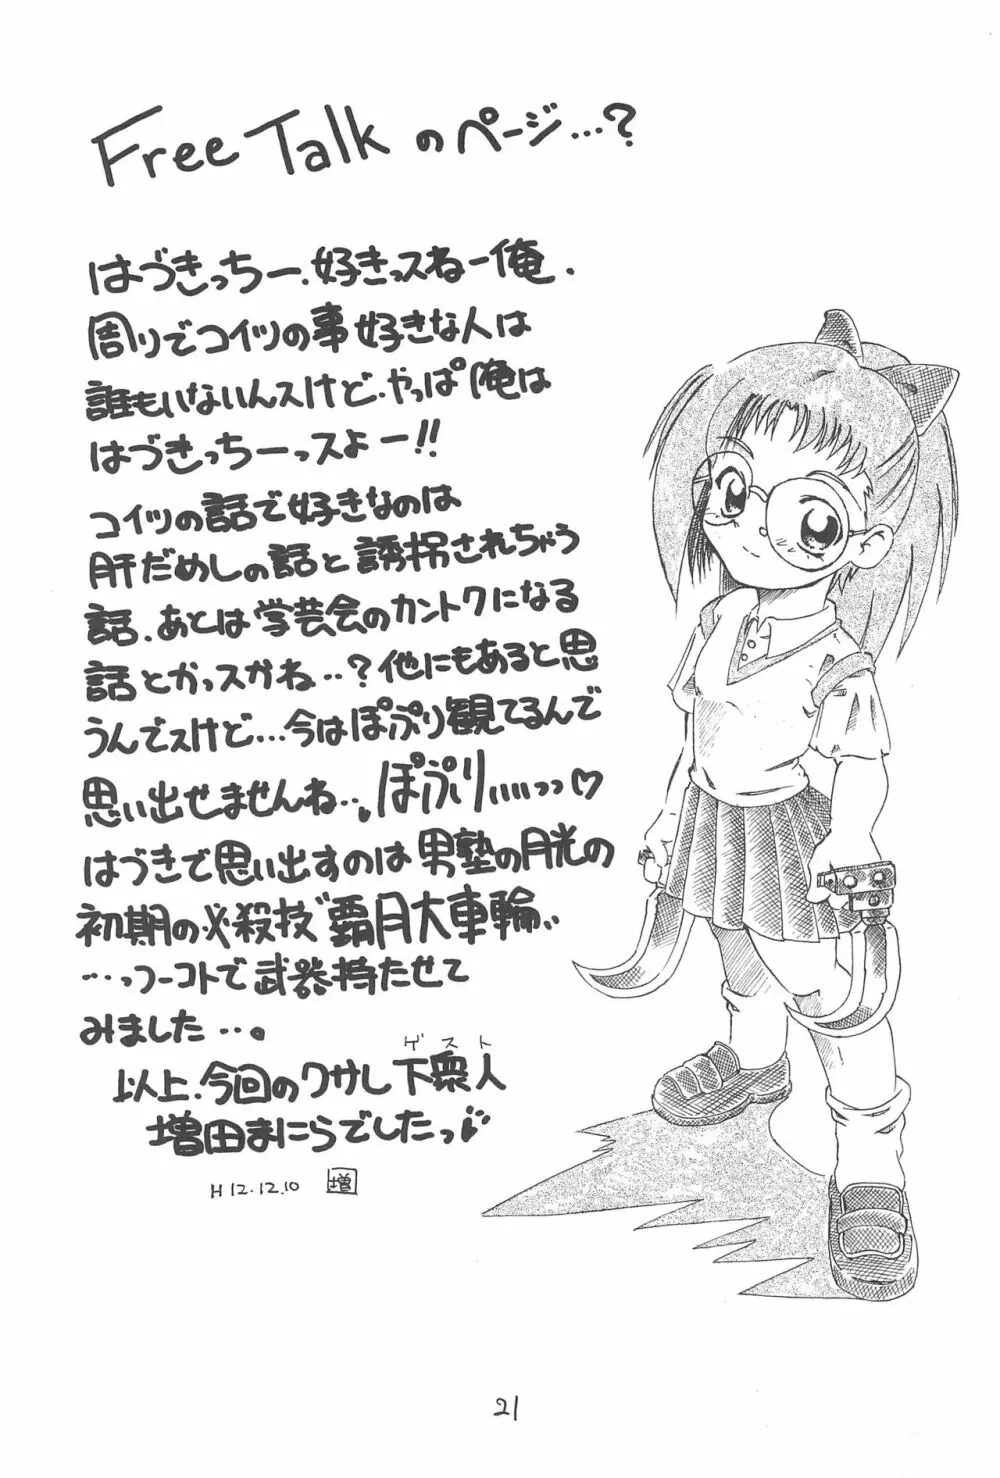 Free Talk のページ…?
はづきっちー、好きっスねー俺、
周りでコイツの事好きな人は
誰もいないんスけど、やっぱ俺は
はづきっちーっスよー!!
コイツの話で好きなのは
肝だめしの話と誘拐されちゃう
話、あとは学芸会のカントクになる
話とかっスかね…?他にもあると思
うんですけど…今はぽぷり観てるんで
思い出せませんね…。ぽぷりぃぃぃっっ♡
はづきで思い出すのは男塾の月光の
初期の必殺技"覇月大車輪、、
…っつーコトで武器持たせて
みました…。
ゲスト
以上、今回のワサし下衆人
増田まにらでしたっ
H12.12.10 増
21